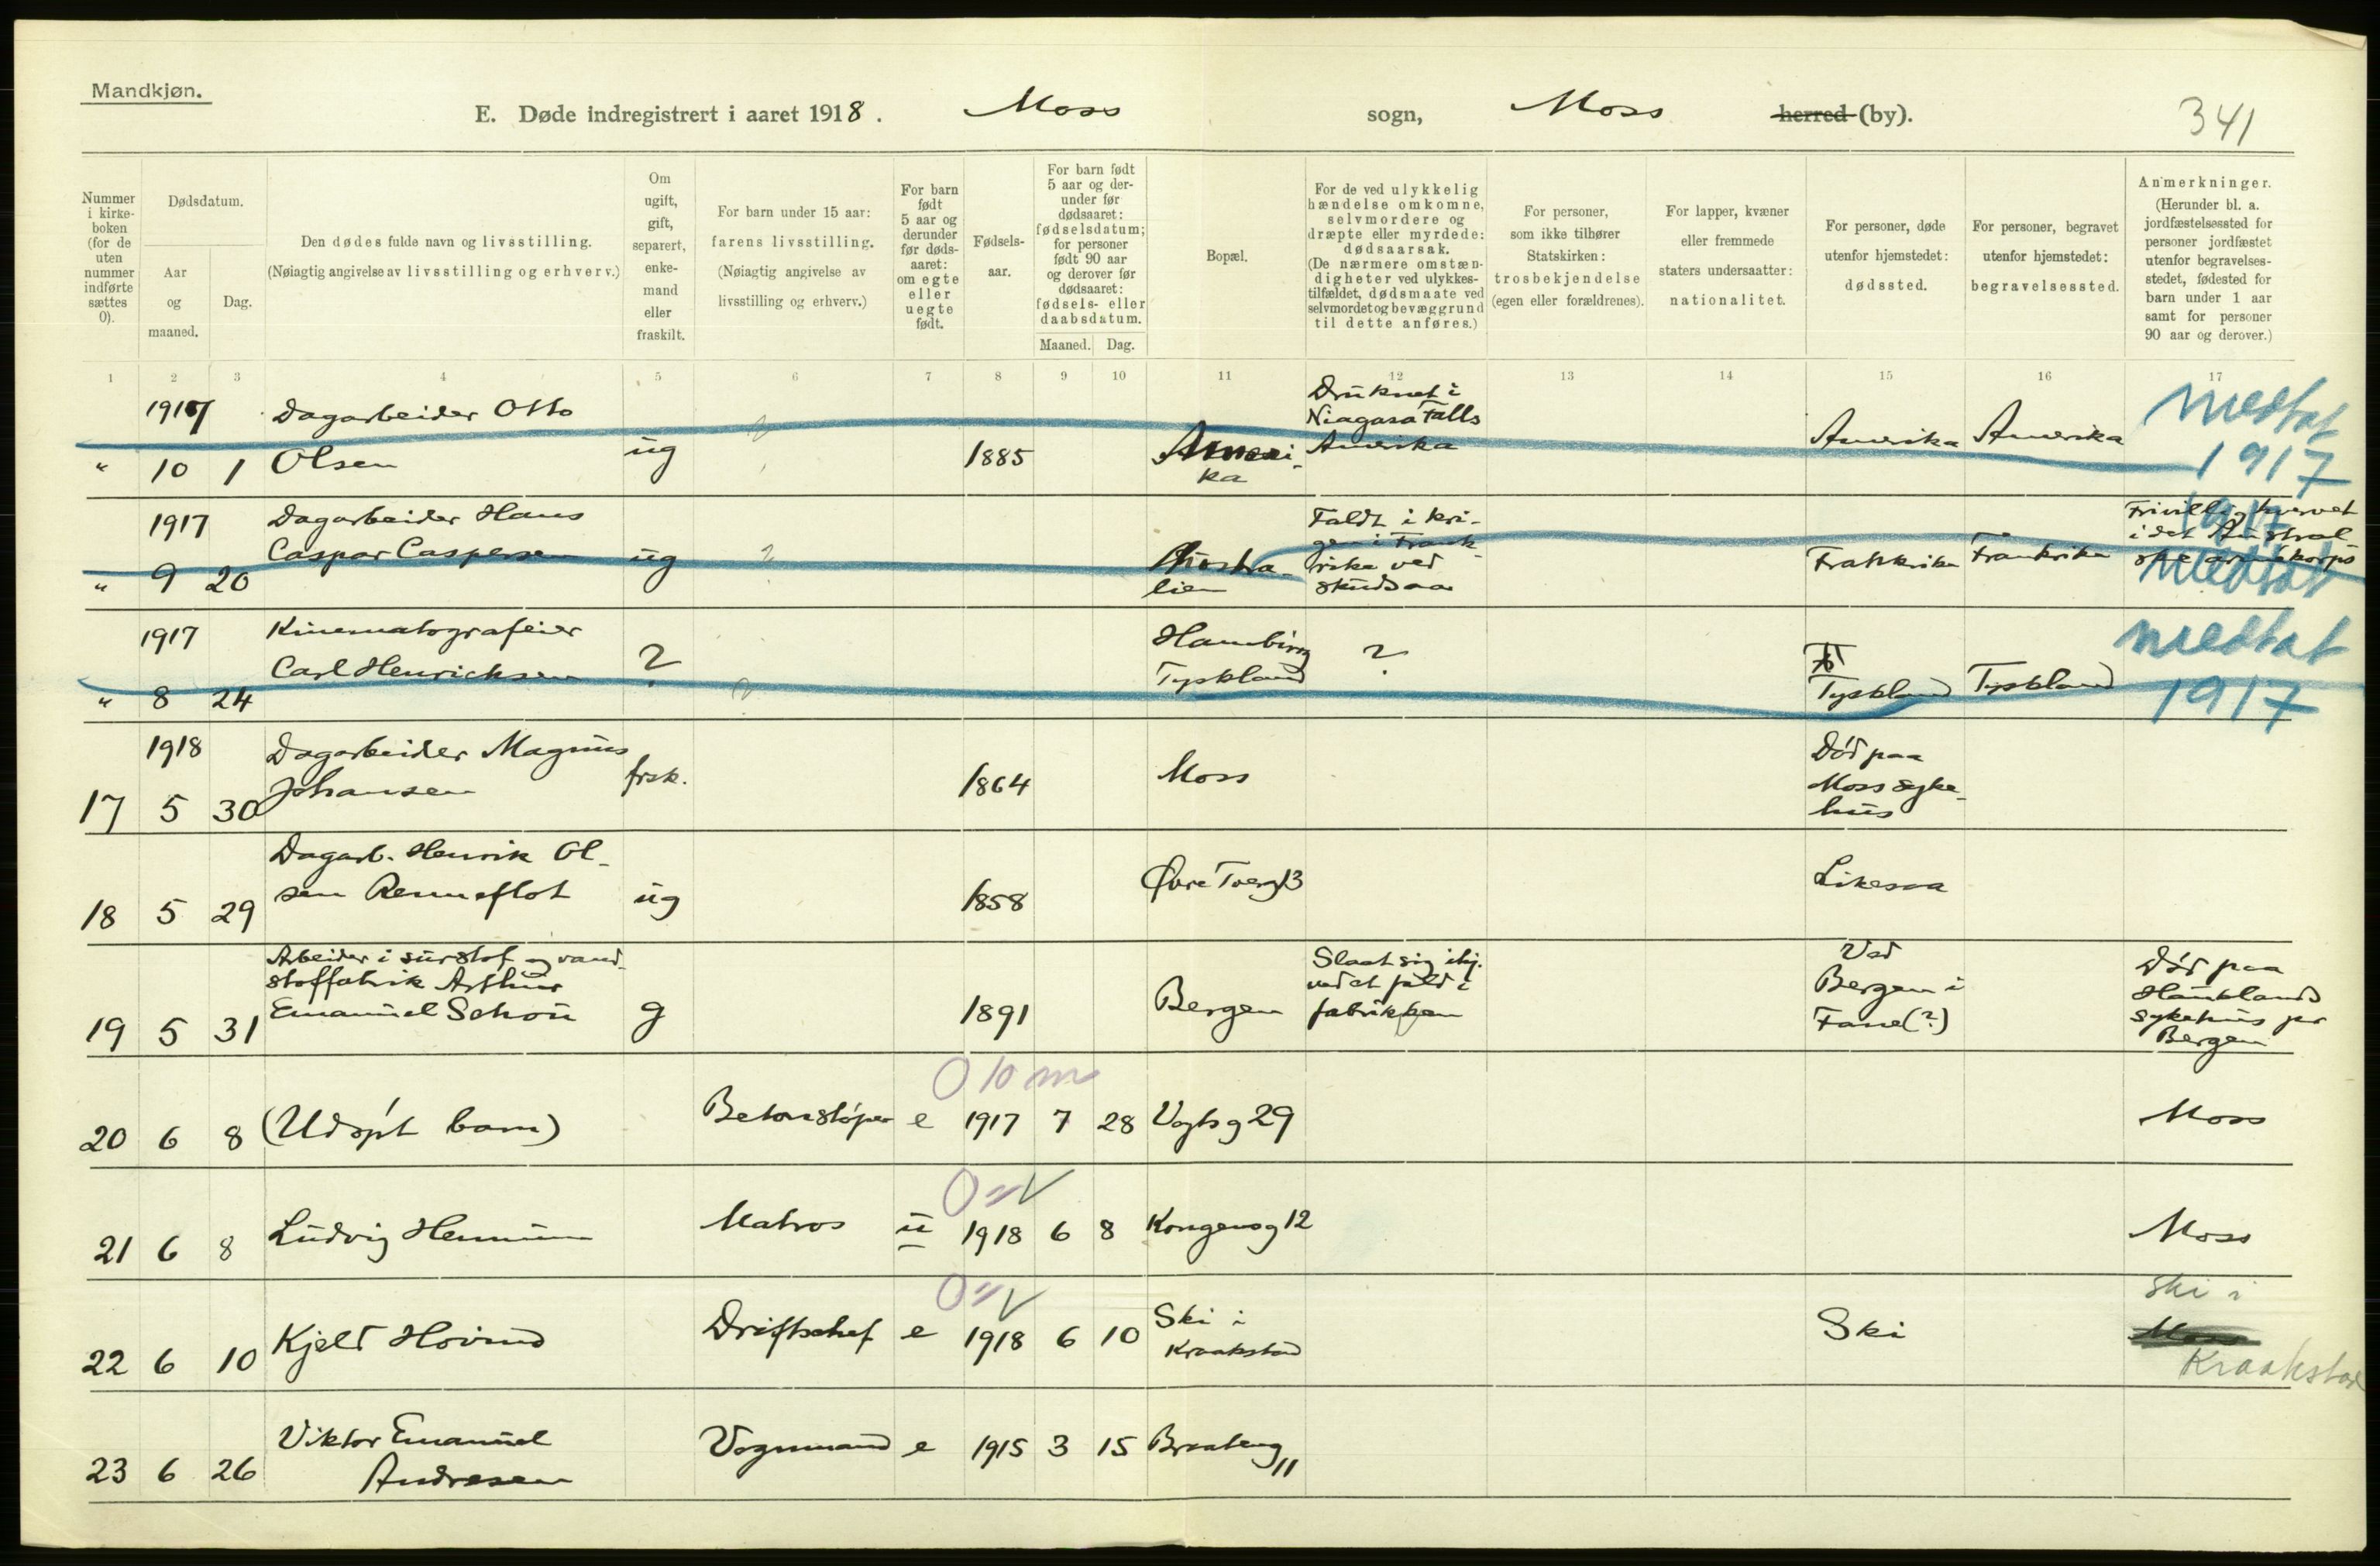 Mandkjøn.
E. Døde indregistrert i aaret 1918. Moss sogn, Moss herred (by). 341
Nummer i kirkeboken (for de uten nummer indførte sættes 0).
Dødsdatum.
Aar og maaned.
Dag.
Den dødes fulde navn og livsstilling.
(Nøiagtig angivelse av livsstilling og erhverv.)
Om ugift, gift, separert, enkemand eller fraskilt.
For barn under 15 aar: farens livsstilling.
(Nøiagtig angivelse av livsstilling og erhverv.)
For barn født 5 aar og derunder før dødsaaret: om egte eller uegte født.
Fødselsaar.
For barn født 5 aar og derunder før dødsaaret: fødselsdatum; for personer født 90 aar og derover før dødsaaret: fødsels- eller daabsdatum.
Maaned. Dag.
Bopæl.
For de ved ulykkelig hændelse omkomne, selvmordere og dræpte eller myrdede: dødsaarsak.
(De nærmere omstændigheter ved ulykkestilfældet, dødsmaate ved selvmordet og bevæggrund til dette anføres.)
For personer, som ikke tilhører Statskirken: trosbekjendelse (egen eller forældrenes).
For lapper, kvæner eller fremmede staters undersaatter: nationalitet.
For personer, døde utenfor hjemstedet: dødssted.
For personer, begravet utenfor hjemstedet: begravelsessted.
Anmerkninger.
(Herunder bl. a. jordfæstelsessted for personer jordfæstet utenfor begravelsesstedet, fødested for barn under 1 aar samt for personer 90 aar og derover.)
1 2 3 4 5 6 7 8 9 10 11 12 13 14 15 16 17
1917 Dagarbeider Otto Druknet i
Niagara Falls medtat
" 10 1 Olsen ug ? 1885 Ameri- Amerika Amerika Amerika 1917
ka
1917 Dagarbeider Hans Faldt i kri- Frivillig hvervet
Caspar Caspersen ug ? Austra- gen i Frank- Frankrike Frankrike i det Austral-
" 9 20 lien rike ved skudsaar ske armékorps
1917 medtat
1917 Kinematografeier Hamburg medtat
Carl Henrichsen ? ? Tyskland ?
" 8 24 Tyskland Tyskland 1917
1918 Dagarbeider Magnus Død paa
Johansen frsk. 1864 Moss Moss syke-
17 5 30 hus
Dagarb. Henrik Ol-
18 5 29 sen Renneflot ug 1858 Øvre Tverg 13 Likesaa
Arbeider i surstof og vand- Slaat sig ihj. Ved Død paa
stoffabrik Arthur ved et fald i Bergen i Hauklands
19 5 31 Emanuel Schou g 1891 Bergen fabrikken Fane (?) sykehus pr
Bergen
0 10 m
20 6 8 (Udøpt barn) Betonstøper e 1917 7 28 Vogtsg 29 Moss
0 " V
21 6 8 Ludvig Hennum Matros u 1918 6 8 Kongensg 12 Moss
0 " V Ski i
22 6 10 Kjeld Hovind Driftschef e 1918 6 10 Ski i Kraakstad Ski Moss
Kraakstad
Viktor Emanuel
23 6 26 Andresen Vognmand e 1915 3 15 Braateng 11